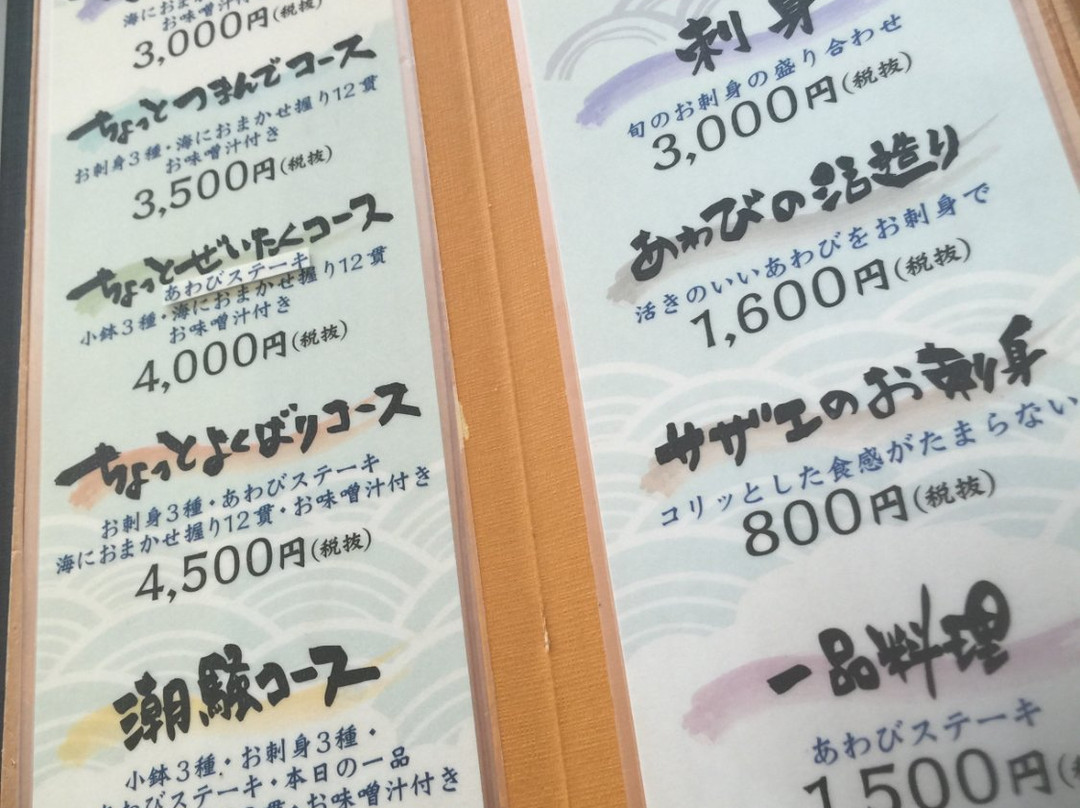 海におま
お味噌汁付
3,000円(税抜)
ちょっとつまんでコース
お刺身3種・海におまかせ握り12貫
お味噌汁付き
3,500円(税抜)
ちょっとぜいたくコース
あわびステーキ
小鉢3種・海におまかせ握り12貫
お味噌汁付き
4,000円(税抜)
ちょっとよくばりコース
お刺身3種・あわびステーキ
海におまかせ握り12貫・お味噌汁付き
4,500円(税抜)
潮騒コース
小鉢3種・お刺身3種・
あわびステーキ・本日の一品
貫・お味噌汁付き
刺身
旬のお刺身の盛り合わせ
3,000円(税抜)
あわびの活造り
活きのいいあわびをお刺身で
1,600円(税抜)
サザエのお刺身
コリッとした食感がたまらない
800円(税抜)
一品料理
あわびステーキ
1,500円